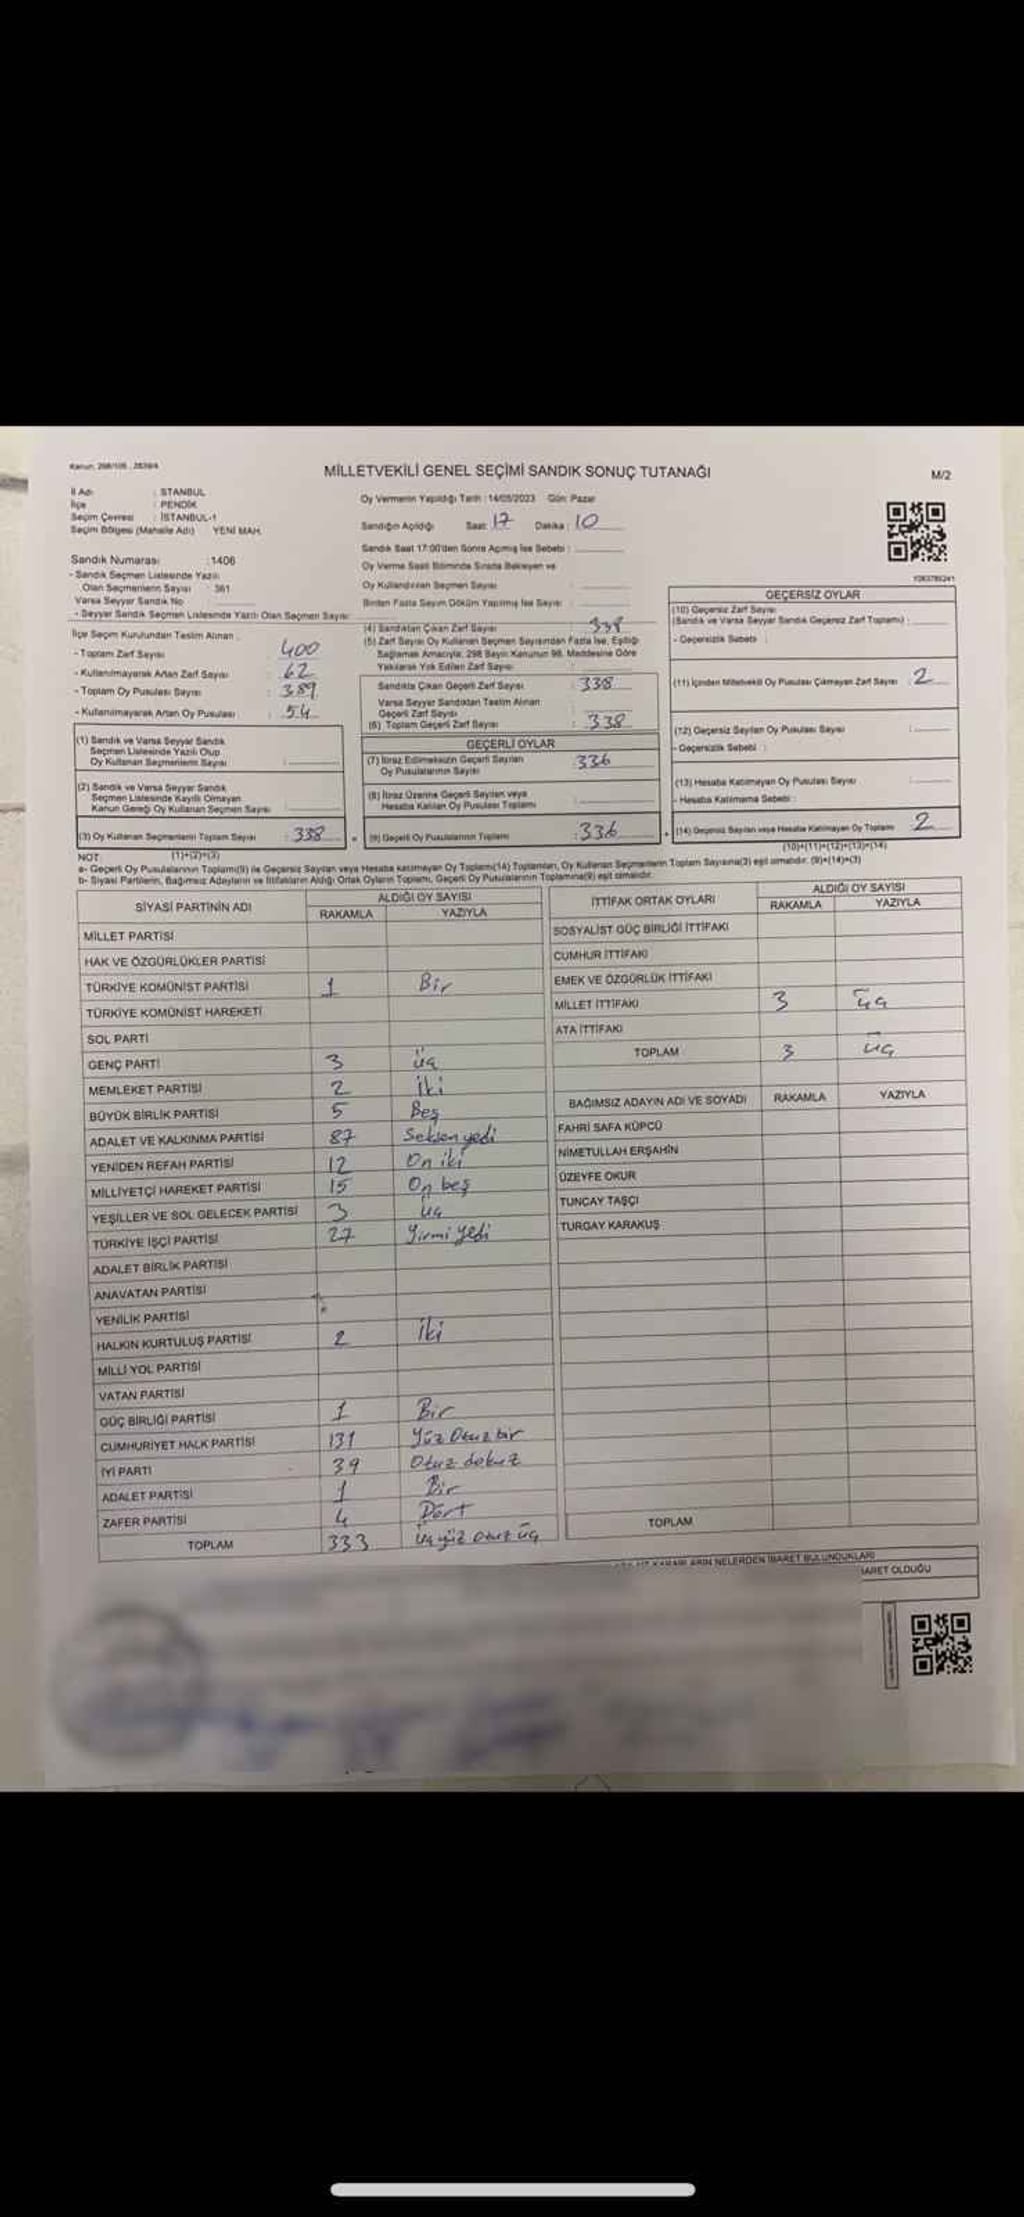 Kanun: 298/105, 2839/4
MİLLETVEKİLİ GENEL SEÇİMİ SANDIK SONUÇ TUTANAĞI
M/2
İl Adı : İSTANBUL
İlçe : PENDİK
Seçim Çevresi : İSTANBUL-1
Seçim Bölgesi (Mahalle Adı) YENİ MAH.
Oy Vermenin Yapıldığı Tarih : 14/05/2023 Gün: Pazar
Sandığın Açıldığı Saat: 17 Dakika : 10
Sandık Saat 17:00'den Sonra Açılmış İse Sebebi :
Oy Verme Saati Bitiminde Sırada Bekleyen ve
Oy Kullandırılan Seçmen Sayısı
Birden Fazla Sayım Döküm Yapılmış İse Sayısı :
Sandık Numarası : 1406
- Sandık Seçmen Listesinde Yazılı
Olan Seçmenlerin Sayısı : 361
Varsa Seyyar Sandık No
- Seyyar Sandık Seçmen Listesinde Yazılı Olan Seçmen Sayısı
İlçe Seçim Kurulundan Teslim Alınan :
- Toplam Zarf Sayısı : 400
- Kullanılmayarak Artan Zarf Sayısı : 62
- Toplam Oy Pusulası Sayısı : 389
- Kullanılmayarak Artan Oy Pusulası : 54
(1) Sandık ve Varsa Seyyar Sandık
Seçmen Listesinde Yazılı Olup
Oy Kullanan Seçmenlerin Sayısı :
(2) Sandık ve Varsa Seyyar Sandık
Seçmen Listesinde Kayıtlı Olmayan
Kanun Gereği Oy Kullanan Seçmen Sayısı
(3) Oy Kullanan Seçmenlerin Toplam Sayısı : 338
(1)+(2)=(3)
(4) Sandıktan Çıkan Zarf Sayısı : 338
(5) Zarf Sayısı Oy Kullanan Seçmen Sayısından Fazla İse, Eşitliği
Sağlamak Amacıyla, 298 Sayılı Kanunun 98. Maddesine Göre
Yakılarak Yok Edilen Zarf Sayısı
Sandıkta Çıkan Geçerli Zarf Sayısı : 338
Varsa Seyyar Sandıktan Teslim Alınan
Geçerli Zarf Sayısı
(6) Toplam Geçerli Zarf Sayısı : 338
GEÇERLİ OYLAR
(7) İtiraz Edilmeksizin Geçerli Sayılan
Oy Pusulalarının Sayısı 336
(8) İtiraz Üzerine Geçerli Sayılan veya
Hesaba Katılan Oy Pusulası Toplamı
(9) Geçerli Oy Pusulalarının Toplamı : 336
GEÇERSİZ OYLAR
(10) Geçersiz Zarf Sayısı
(Sandık ve Varsa Seyyar Sandık Geçersiz Zarf Toplamı) :
- Geçersizlik Sebebi :
(11) İçinden Milletvekili Oy Pusulası Çıkmayan Zarf Sayısı : 2
(12) Geçersiz Sayılan Oy Pusulası Sayısı :
- Geçersizlik Sebebi :
(13) Hesaba Katılmayan Oy Pusulası Sayısı :
- Hesaba Katılmama Sebebi :
(14) Geçersiz Sayılan veya Hesaba Katılmayan Oy Toplamı 2
(10)+(11)+(12)+(13)=(14)
NOT:
a- Geçerli Oy Pusulalarının Toplamı(9) ile Geçersiz Sayılan veya Hesaba katılmayan Oy Toplamı(14) Toplamları, Oy Kullanan Seçmenlerin Toplam Sayısına(3) eşit olmalıdır. (9)+(14)=(3)
b- Siyasi Partilerin, Bağımsız Adayların ve İttifakların Aldığı Ortak Oyların Toplamı, Geçerli Oy Pusulalarının Toplamına(9) eşit olmalıdır.
SİYASİ PARTİNİN ADI ALDIĞI OY SAYISI
RAKAMLA YAZIYLA
MİLLET PARTİSİ
HAK VE ÖZGÜRLÜKLER PARTİSİ
TÜRKİYE KOMÜNİST PARTİSİ 1 Bir
TÜRKİYE KOMÜNİST HAREKETİ
SOL PARTİ
GENÇ PARTİ 3 üç
MEMLEKET PARTİSİ 2 iki
BÜYÜK BİRLİK PARTİSİ 5 Beş
ADALET VE KALKINMA PARTİSİ 87 Seksen yedi
YENİDEN REFAH PARTİSİ 12 On iki
MİLLİYETÇİ HAREKET PARTİSİ 15 On beş
YEŞİLLER VE SOL GELECEK PARTİSİ 3 üç
TÜRKİYE İŞÇİ PARTİSİ 27 Yirmi yedi
ADALET BİRLİK PARTİSİ
ANAVATAN PARTİSİ
YENİLİK PARTİSİ
HALKIN KURTULUŞ PARTİSİ 2 iki
MİLLİ YOL PARTİSİ
VATAN PARTİSİ
GÜÇ BİRLİĞİ PARTİSİ 1 Bir
CUMHURİYET HALK PARTİSİ 131 Yüz Otuz bir
İYİ PARTİ 39 Otuz dokuz
ADALET PARTİSİ 1 Bir
ZAFER PARTİSİ 4 Dört
TOPLAM 333 üç yüz otuz üç
İTTİFAK ORTAK OYLARI ALDIĞI OY SAYISI
RAKAMLA YAZIYLA
SOSYALİST GÜÇ BİRLİĞİ İTTİFAKI
CUMHUR İTTİFAKI
EMEK VE ÖZGÜRLÜK İTTİFAKI
MİLLET İTTİFAKI 3 üç
ATA İTTİFAKI
TOPLAM 3 üç
BAĞIMSIZ ADAYIN ADI VE SOYADI RAKAMLA YAZIYLA
FAHRİ SAFA KÜPCÜ
NİMETULLAH ERŞAHİN
ÜZEYFE OKUR
TUNCAY TAŞÇI
TURGAY KARAKUŞ
TOPLAM
NELERDEN İBARET BULUNDUKLARI
OLDUĞU